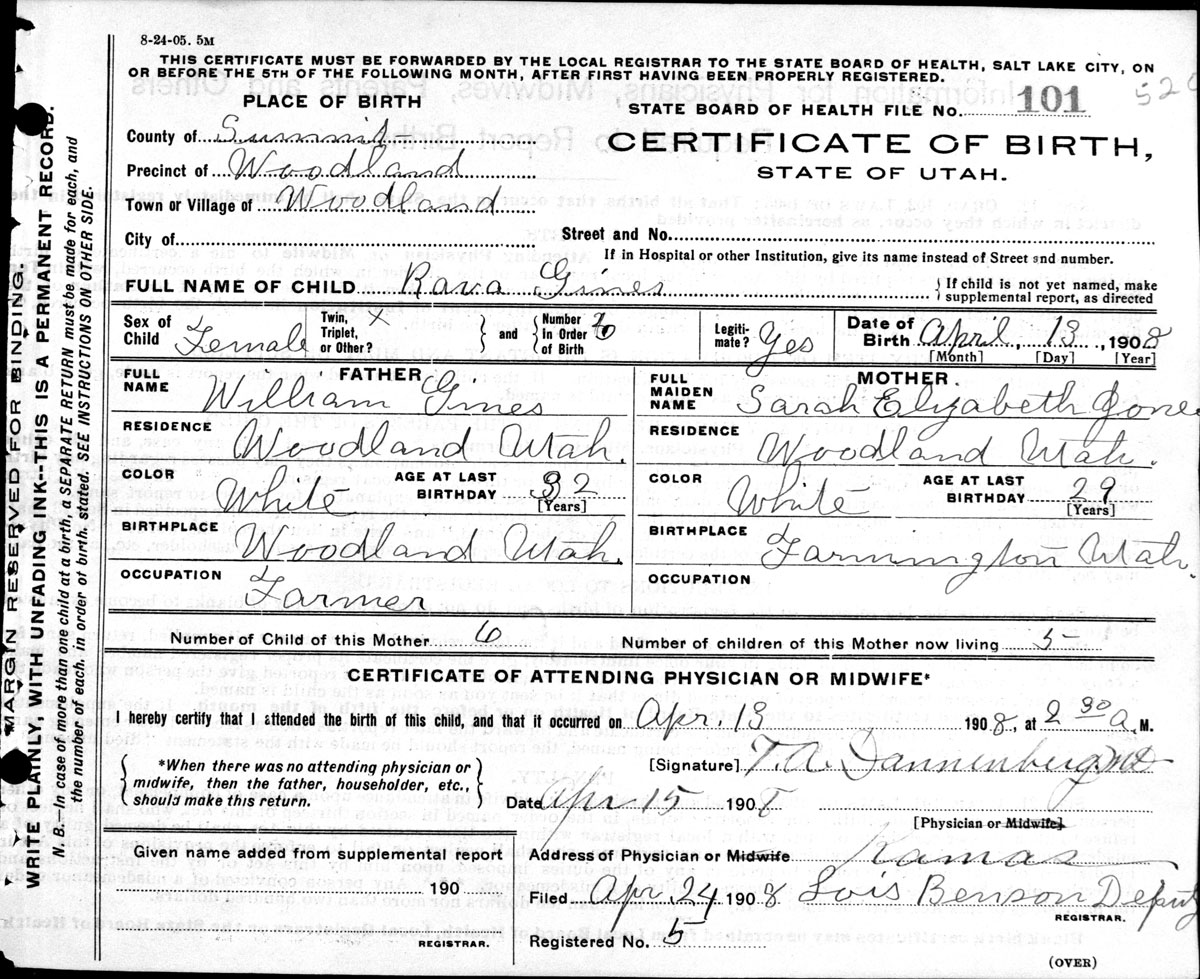 8-24-05. 5M
THIS CERTIFICATE MUST BE FORWARDED BY THE LOCAL REGISTRAR TO THE STATE BOARD OF HEALTH, SALT LAKE CITY, ON
OR BEFORE THE 5TH OF THE FOLLOWING MONTH, AFTER FIRST HAVING BEEN PROPERLY REGISTERED.
PLACE OF BIRTH
STATE BOARD OF HEALTH FILE No. 101
County of Summit
CERTIFICATE OF BIRTH,
Precinct of Woodland
STATE OF UTAH.
Town or Village of Woodland
City of Street and No.
If in Hospital or other Institution, give its name instead of Street and number.
FULL NAME OF CHILD Rava Gines } If child is not yet named, make supplemental report, as directed
Sex of Child Female Twin, Triplet, or Other? X } and { Number in Order of Birth Legiti-mate? Yes Date of Birth April, 13, 1908
[Month] [Day] [Year]
FATHER
FULL NAME William Gines
RESIDENCE Woodland Utah.
COLOR White AGE AT LAST BIRTHDAY 32 [Years]
BIRTHPLACE Woodland Utah.
OCCUPATION Farmer
MOTHER.
FULL MAIDEN NAME Sarah Elyzabeth Jones
RESIDENCE Woodland Utah.
COLOR White AGE AT LAST BIRTHDAY 29 [Years]
BIRTHPLACE Farmington Utah.
OCCUPATION
Number of Child of this Mother 6 Number of children of this Mother now living 5
CERTIFICATE OF ATTENDING PHYSICIAN OR MIDWIFE*
I hereby certify that I attended the birth of this child, and that it occurred on Apr. 13 1908, at 2 30 a. M.
{ *When there was no attending physician or midwife, then the father, householder, etc., should make this return. }
[Signature] T. A. Dannenberg MD
Date Apr 15 1908
[Physician or Midwife]
Given name added from supplemental report
190
REGISTRAR.
Address of Physician or Midwife Kamas
Filed Apr. 24 1908 Lois Benson Deputy
REGISTRAR.
Registered No. 5
(OVER)
MARGIN RESERVED FOR BINDING
WRITE PLAINLY, WITH UNFADING INK--THIS IS A PERMANENT RECORD.
N. B.—In case of more than one child at a birth, a SEPARATE RETURN must be made for each, and
the number of each. in order of birth. stated. SEE INSTRUCTIONS ON OTHER SIDE.